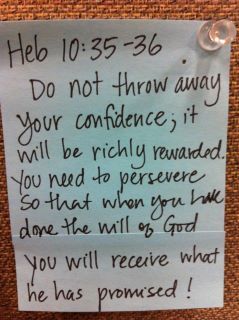 Heb 10:35-36
Do not throw away
your confidence; it
will be richly rewarded.
You need to persevere
so that when you have
done the will of God
you will receive what
he has promised!